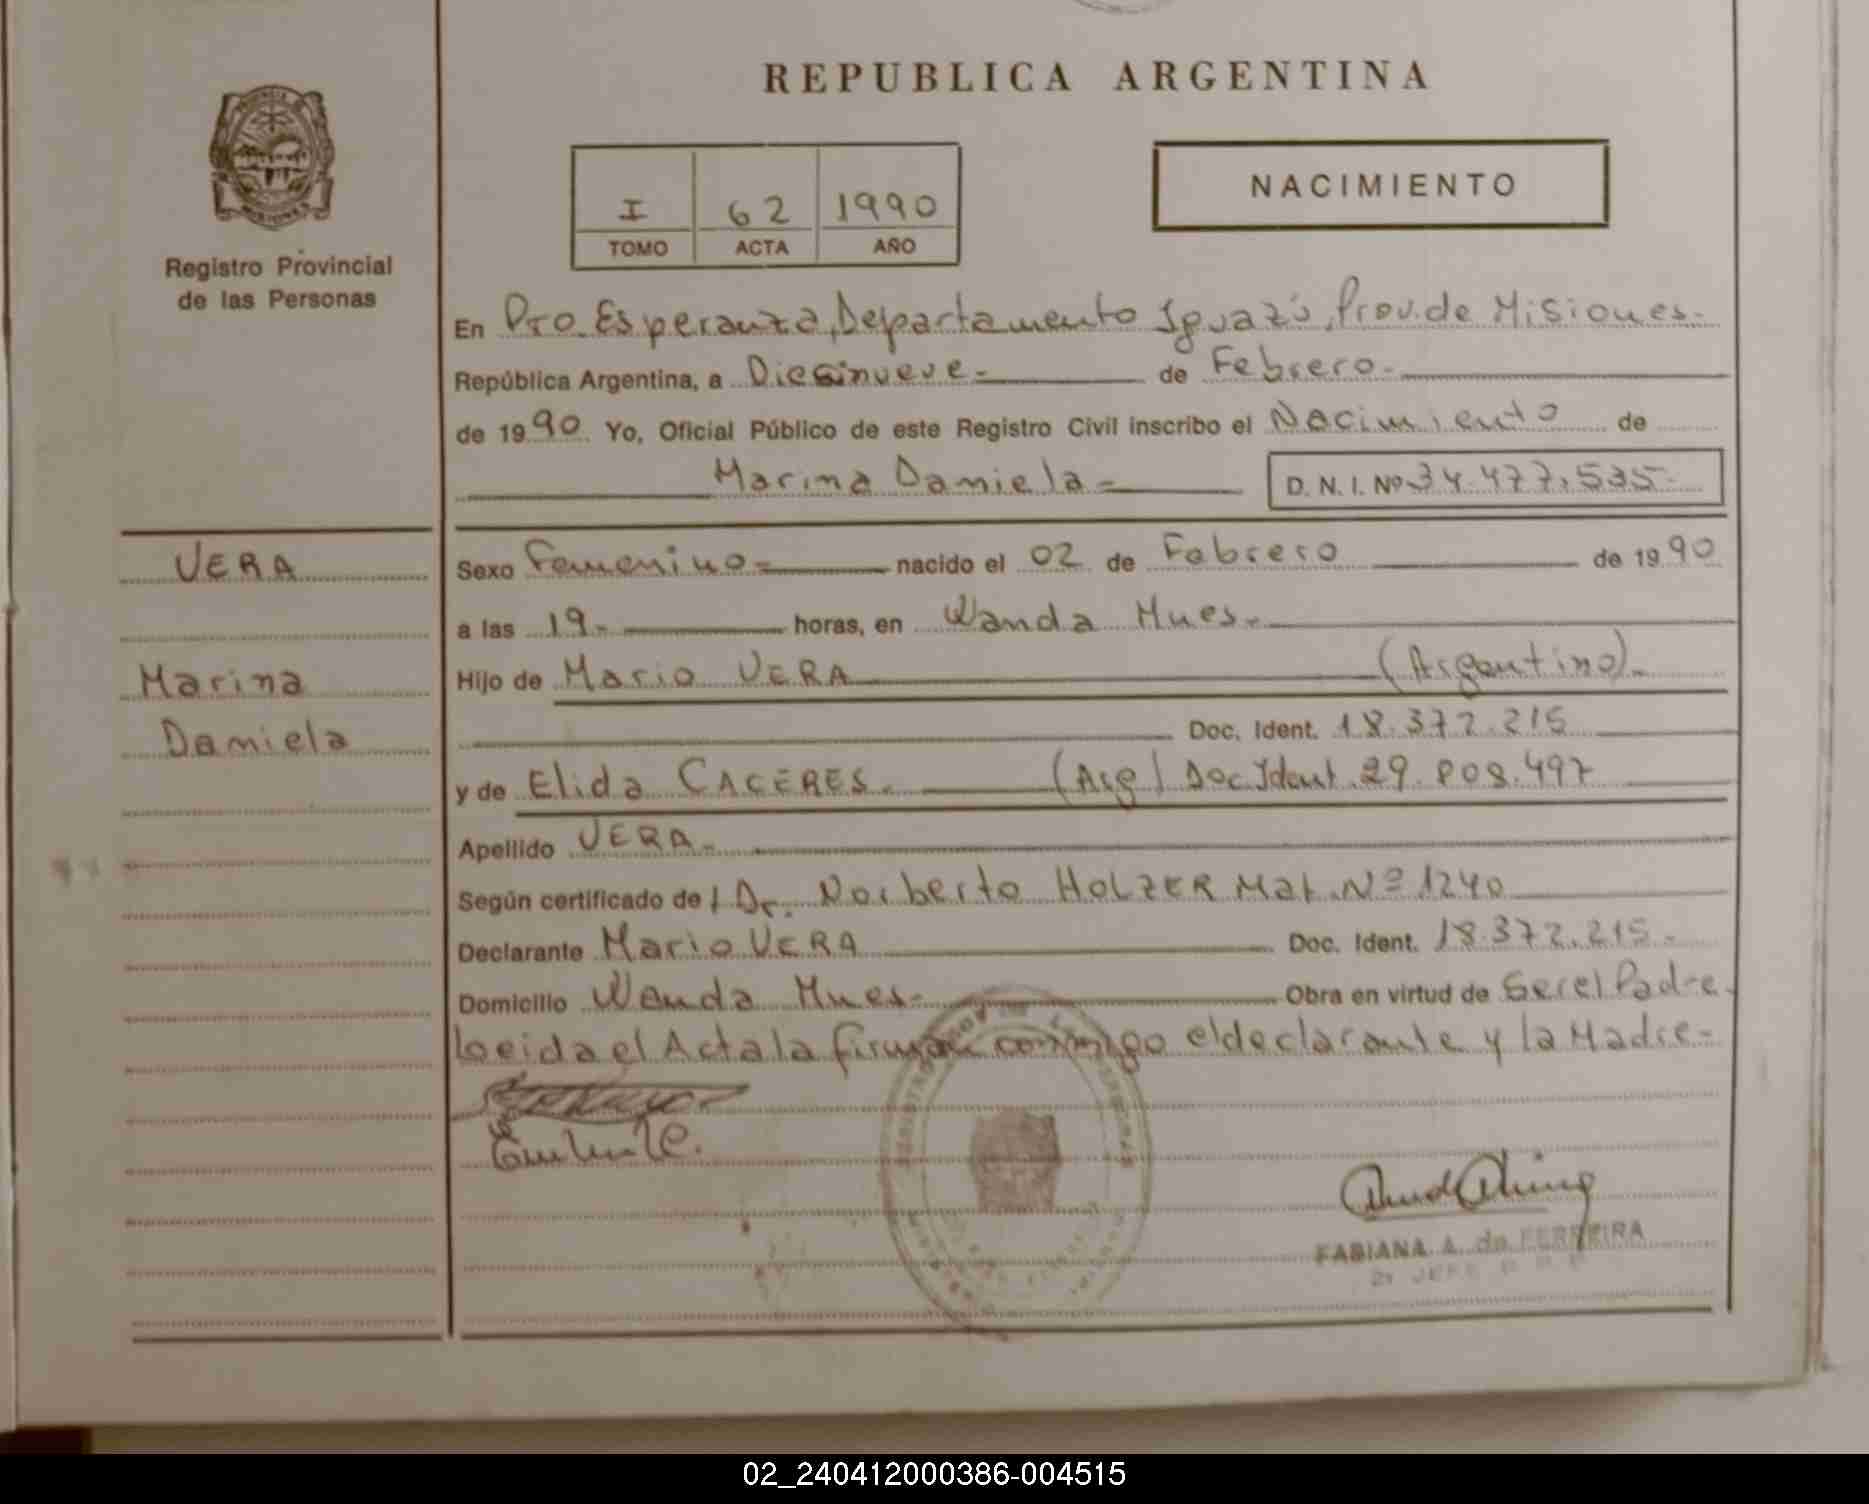 REPUBLICA ARGENTINA
NACIMIENTO
I 62 1990
TOMO ACTA AÑO
Registro Provincial
de las Personas
En Pto. Esperanza, Departamento Iguazú, Prov. de Misiones.-
República Argentina, a Diecinueve.- de Febrero.-
de 1990 Yo, Oficial Público de este Registro Civil inscribo el Nacimiento de
Marina Daniela.- D. N. I. Nº 34.477.535.-
VERA
Marina
Daniela
Sexo Femenino.- nacido el 02 de Febrero de 1990
a las 19.- horas, en Wanda Mnes.-
Hijo de Mario VERA (Argentino).-
Doc. Ident. 18.372.215
y de Elida CACERES.- (Arg) Doc Ident. 29.808.497
Apellido VERA.-
Según certificado de l Dr. Norberto HOLZER Mat. Nº 1240
Declarante Mario VERA Doc. Ident. 18.372.215.-
Domicilio Wanda Mnes.- Obra en virtud de Ser el Padre.
Leida el Acta la firman conmigo el declarante y la Madre.-
FABIANA A. de FERREIRA
02_240412000386-004515